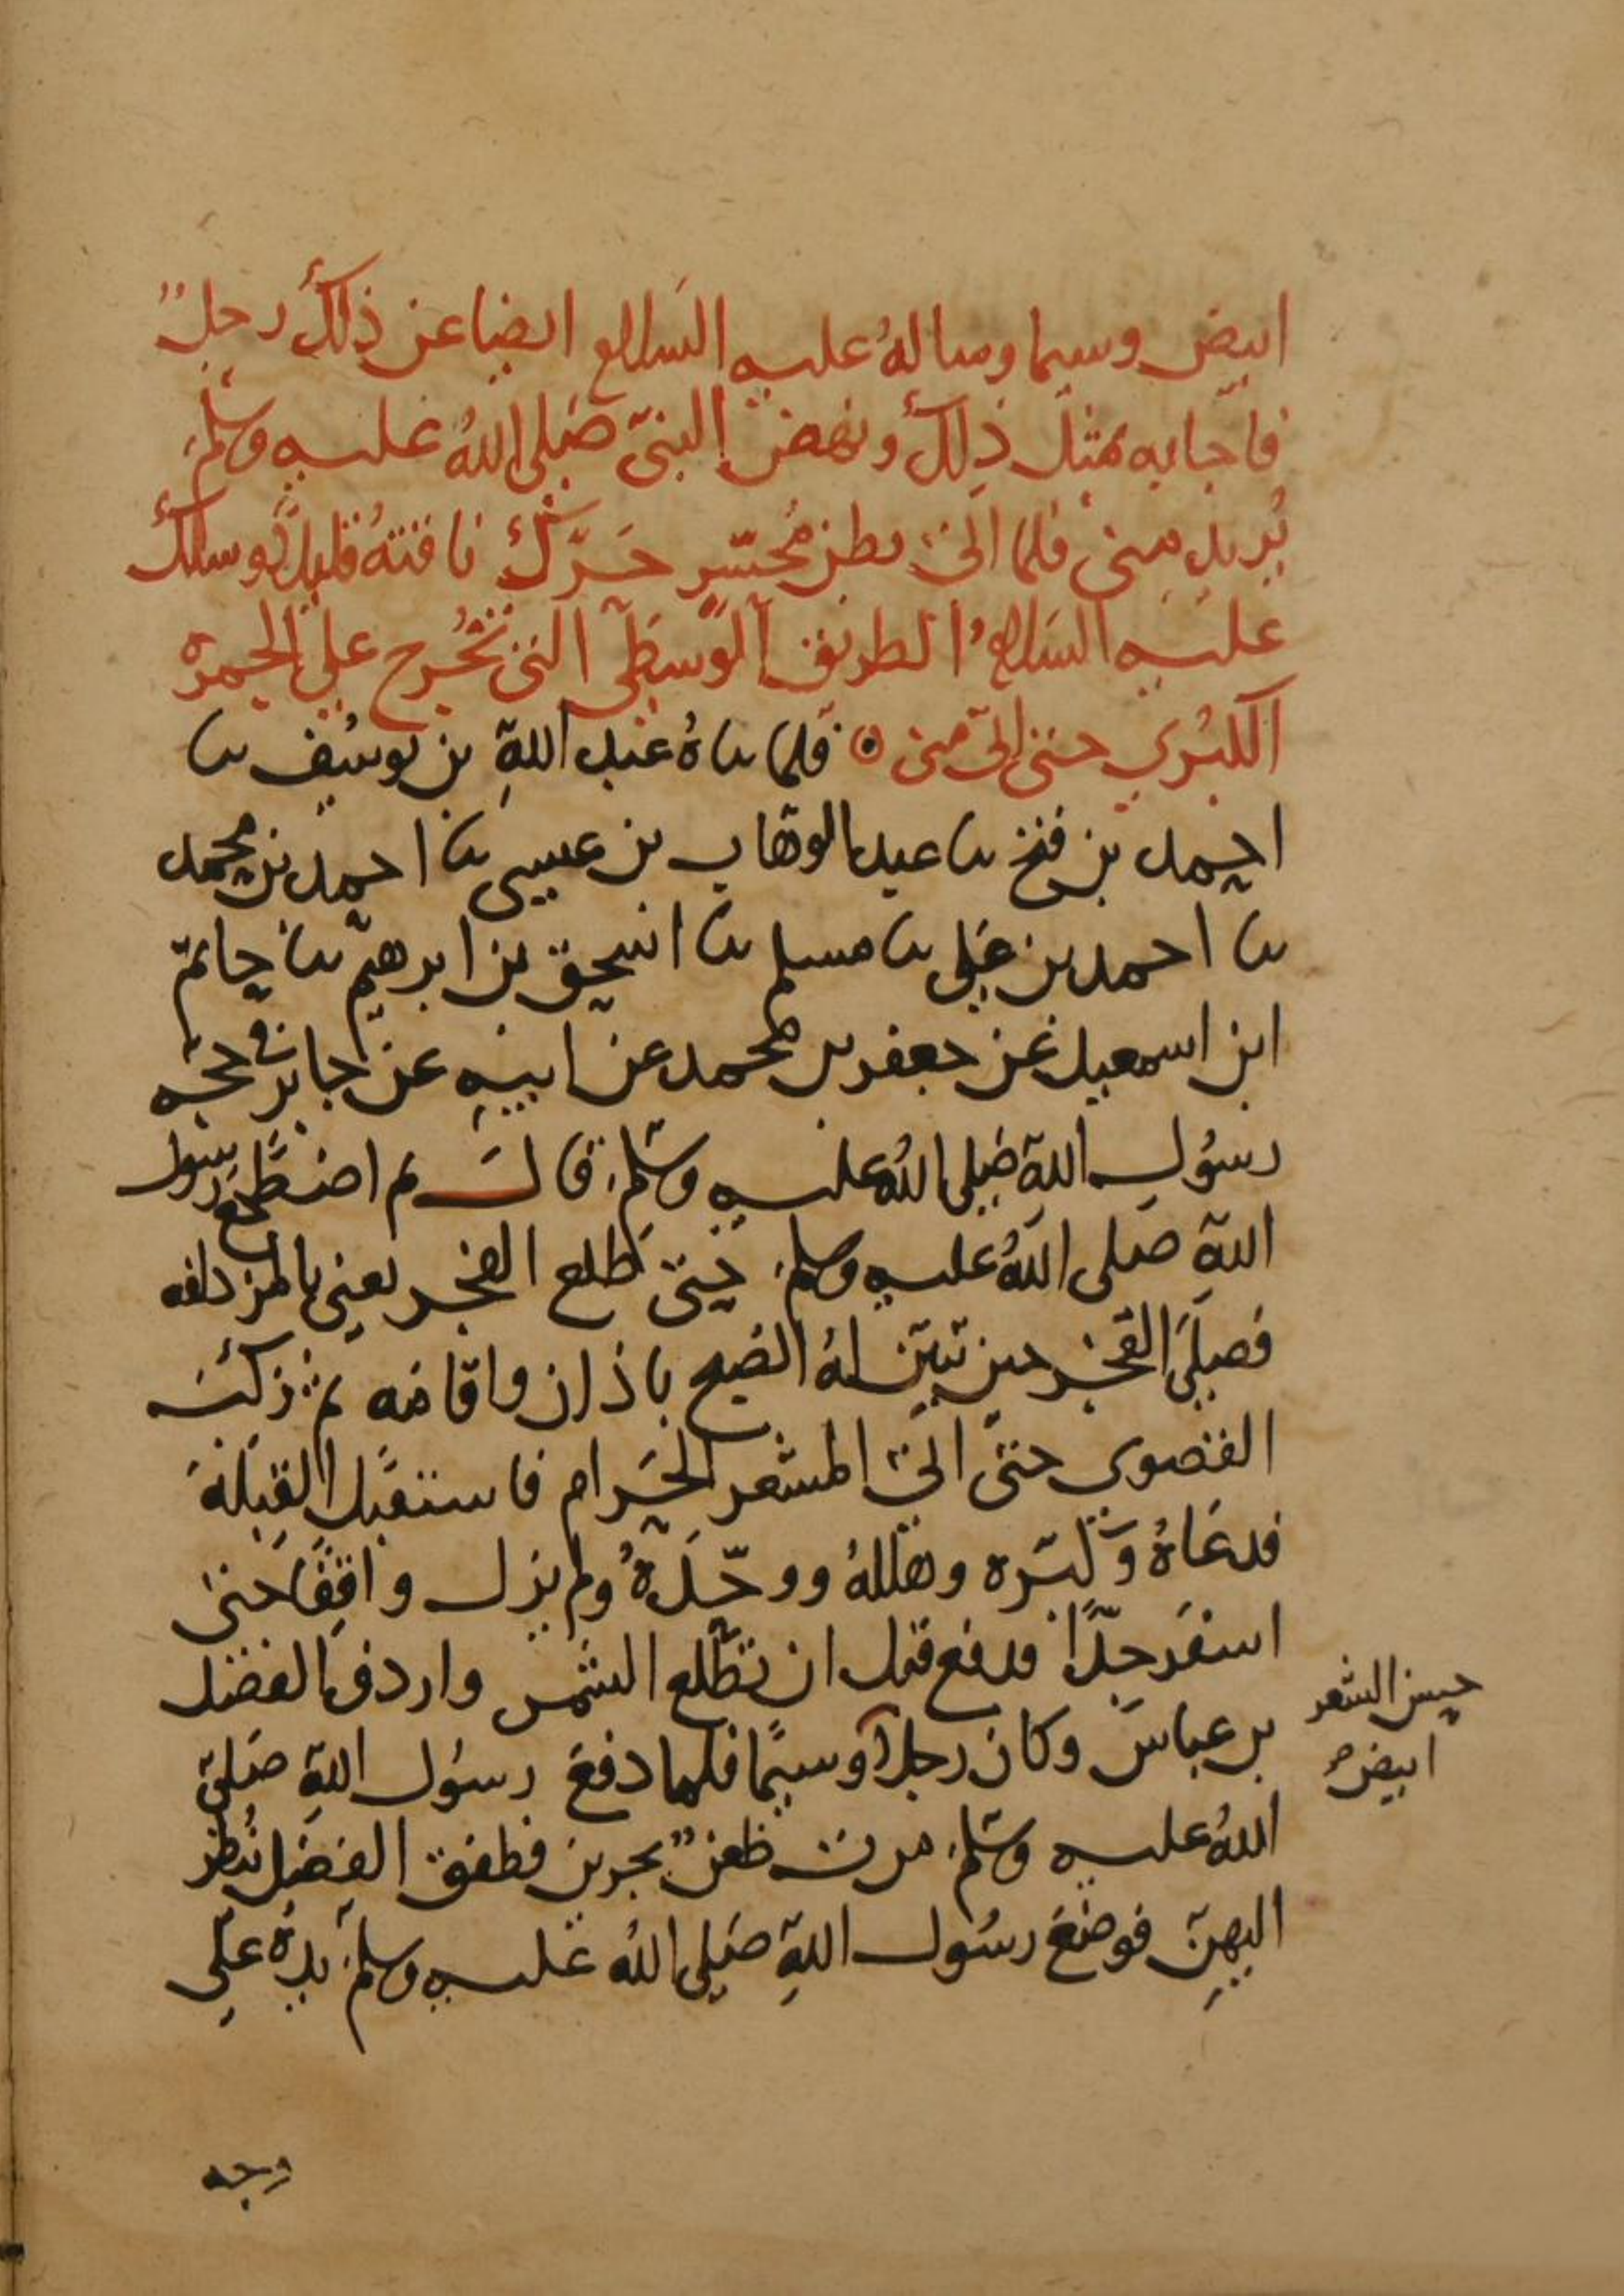 ابيض وسيما وساله عليه السلام ايضا عن ذلك رجلٌ
فاجابه بمثل ذلك ونهض النبي صلى الله عليه وسلم
يريد منى فلما اتى بطن محسّر حرّك ناقتهُ قليلاً وسلك
عليه السلام الطريق الوسطى التي تخرج على الجمرة
الكبرى حتى اتى منى ۞ فلما ناهُ عبد اللهِ بن يوسف نا
احمد بن فتح نا عبد الوهاب بن عيسى نا احمد بن محمد
نا احمد بن علي نا مسلم نا اسحق بن ابرهيم نا حاتم
ابن اسمعيل عن جعفر بن محمد عن ابيه عن جابر في حجه
رسول الله صلى الله عليه وسلم قال ثم اضطجع رسول
الله صلى الله عليه وسلم حتى طلع الفجر يعني بالمزدلفه
فصلى الفجر حين تبيّن له الصبح باذان واقامه ثم ركب
القصوى حتى اتى المشعر الحرام فاستقبل القبلة
فدعاهُ وكبّره وهللهُ ووحّدهُ ولم يزل واقفًا حتى
اسفر جدًّا فدفع قبل ان تطلع الشمس واردف الفضل
بن عباس وكان رجلاً وسيمًا فلما دفع رسول الله صلى
حسن الشعر
ابيض
الله عليه وسلم مرت ظعنٌ يجرين فطفق الفضل ينظر
اليهن فوضع رسول الله صلى الله عليه وسلم يده على
وجه